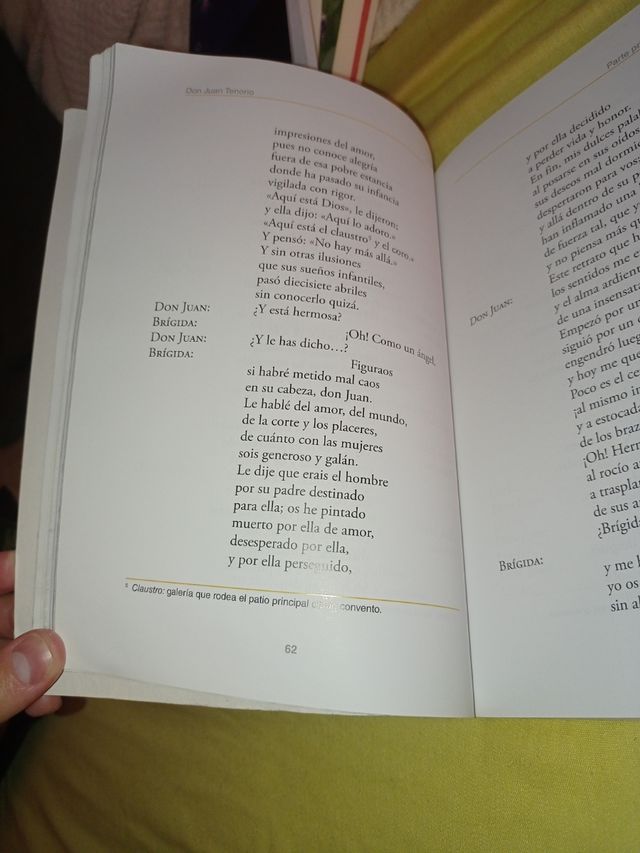 Don Juan Tenorio
impresiones del amor,
pues no conoce alegría
fuera de esa pobre estancia
donde ha pasado su infancia
vigilada con rigor.
«Aquí está Dios», le dijeron;
y ella dijo: «Aquí lo adoro.»
«Aquí está el claustro⁵ y el coro.»
Y pensó: «No hay más allá.»
Y sin otras ilusiones
que sus sueños infantiles,
pasó diecisiete abriles
sin conocerlo quizá.
DON JUAN: ¿Y está hermosa?
BRÍGIDA: ¡Oh! Como un ángel.
DON JUAN: ¿Y le has dicho…?
BRÍGIDA: Figuraos
si habré metido mal caos
en su cabeza, don Juan.
Le hablé del amor, del mundo,
de la corte y los placeres,
de cuánto con las mujeres
sois generoso y galán.
Le dije que erais el hombre
por su padre destinado
para ella; os he pintado
muerto por ella de amor,
desesperado por ella,
y por ella perseguido,
⁵ Claustro: galería que rodea el patio principal de un convento.
62
Parte
y por ella decidido
a perder vida y honor.
En fin, mis dulces
al posarse en sus oídos
sus deseos mal
despertaron para
y allá dentro de su
han inflamado una
de fuerza tal, que
y no piensa más
DON JUAN: Este retrato que
los sentidos me
y el alma
de una
Empezó por
siguió por un
engendró
y hoy me
Poco es el
¡al mismo
y a estocada
de los
¡Oh!
al rocío
a
de sus
BRÍGIDA: y me
yo os
sin